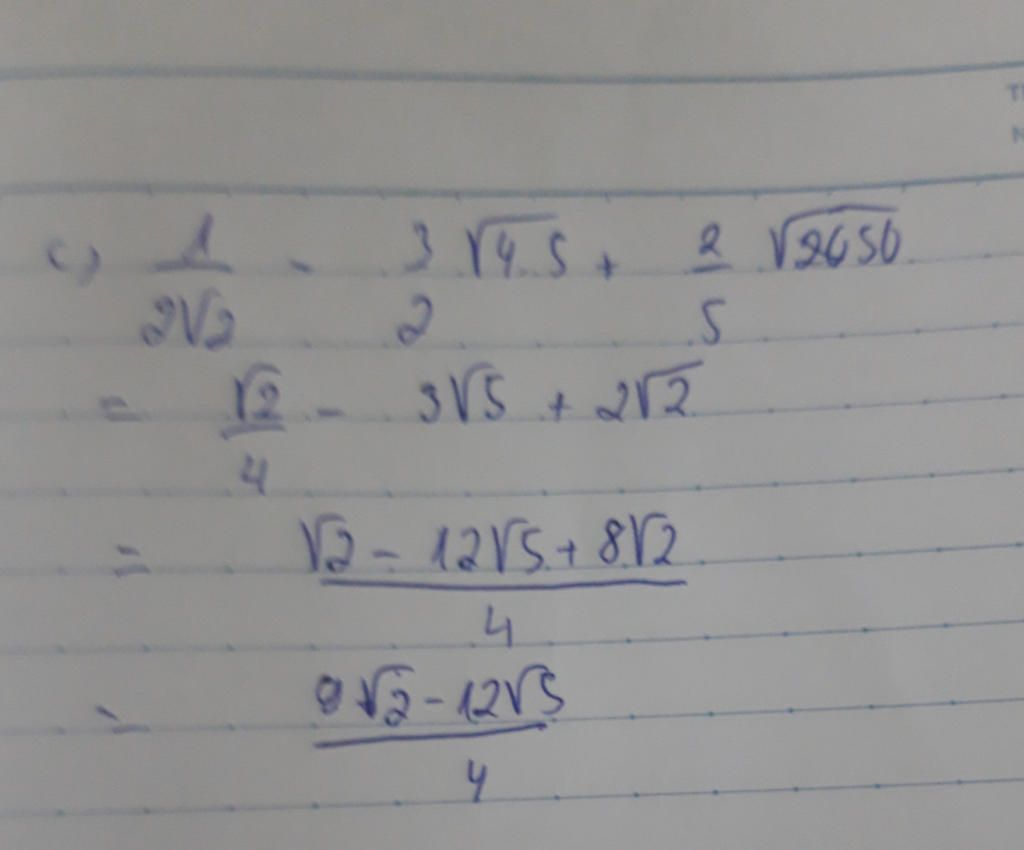 c) 1/(2√2) - 3/2 √4.5 + 2/5 √2650
= √2/4 - 3√5 + 2√2
= (√2 - 12√5 + 8√2)/4
= (9√2 - 12√5)/4